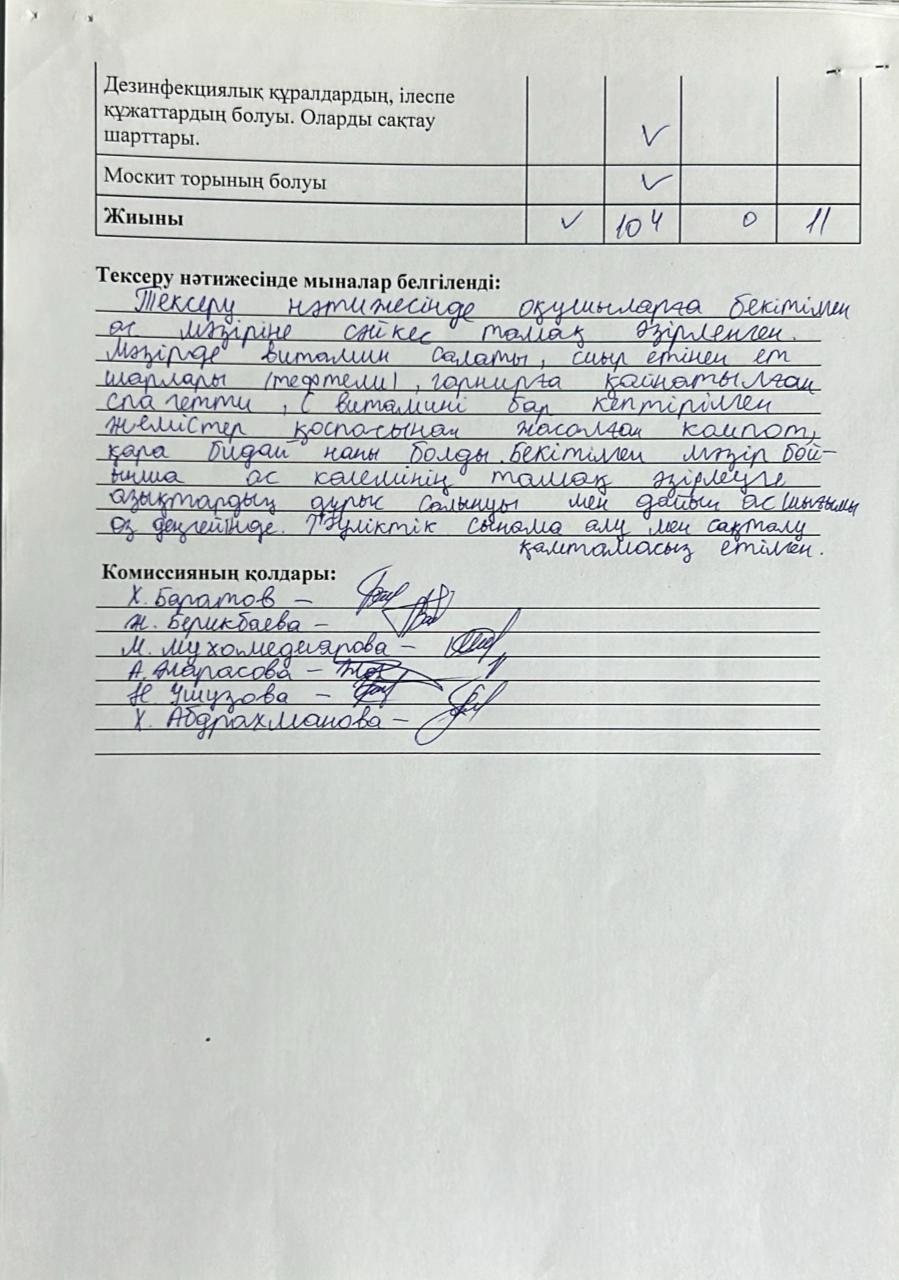 Дезинфекциялық құралдардың, ілеспе
құжаттардың болуы. Оларды сақтау
шарттары. ✓
Москит торының болуы ✓
Жиыны ✓ 104 0 11
Тексеру нәтижесінде мыналар белгіленді:
Тексеру нәтижесінде оқушыларға бекітілген
ас мәзіріне сәйкес тамақ әзірленген.
Мәзірде витамин салаты, сиыр етінен ет
шарлары (тефтели), гарнирға қайнатылған
спагетти, С витамині бар кептірілген
жемістер қоспасынан жасалған компот,
қара бидай наны болды. Бекітілген мәзір бой-
ынша ас көлемінің тамақ әзірлеуге
азықтардың дұрыс салынуы мен дайын ас шығымы
өз деңгейінде. Тәуліктік сынама алу мен сақталу
қамтамасыз етілген.
Комиссияның қолдары:
Х. Баратов –
Ж. Берикбаева –
М. Мухомедиярова –
А. Жарасова –
Н. Ушузова –
Х. Абдрахманова –